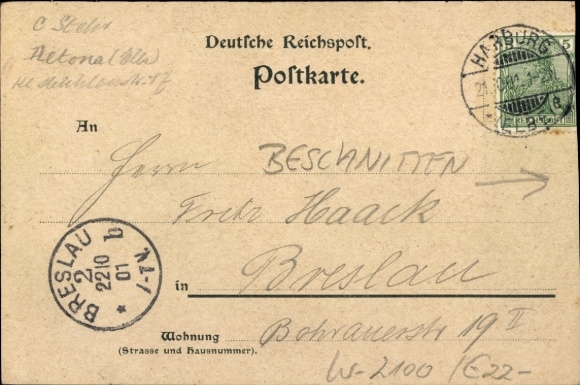 C Stehr
Altona (Elbe)
Deutsche Reichspost.
Postkarte.
HARBURG
(ELBE)
5
REICHSPOST
An
Herrn BESCHNITTEN
Fritz Haack
in Breslau
BRESLAU
2
22 10
01
Wohnung Bohrauerstr 19 II
(Strasse und Hausnummer).
W-2100 /€22-